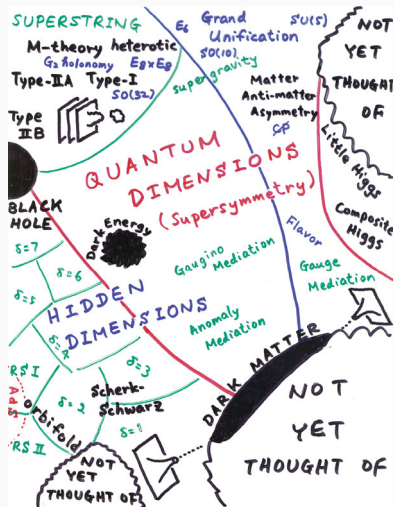 SUPERSTRING
M-theory heterotic
G2 holonomy E8×E8
Type-IIA Type-I
SO(32)
Type
IIB
E6 Grand SU(5)
Unification
SO(10)
supergravity
Matter
Anti-matter
Asymmetry
CP
NOT
YET
THOUGHT
OF
Little Higgs
Composite
Higgs
QUANTUM
DIMENSIONS
(Supersymmetry)
BLACK
HOLE
Dark Energy
Flavor
Gaugino
Mediation
Gauge
Mediation
Anomaly
Mediation
δ=7
δ=6
δ=5
HIDDEN
DIMENSIONS
δ=4
δ=3
RS I
AdS
orbifold
δ=2
Scherk-
Schwarz
RS II
δ=1
DARK MATTER
NOT
YET
THOUGHT OF
NOT
YET
THOUGHT OF